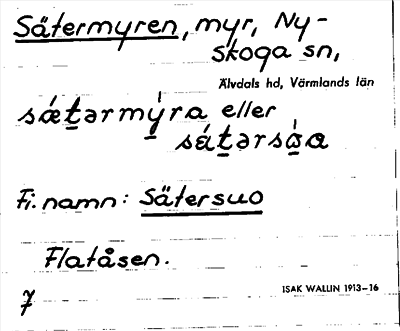 Sätermyren, myr, Ny-
skoga sn,
Älvdals hd, Värmlands län
sǽtərmýra eller
sǽtərsúa
Fi. namn: Sätersuo
Flatåsen.
7
ISAK WALLIN 1913–16